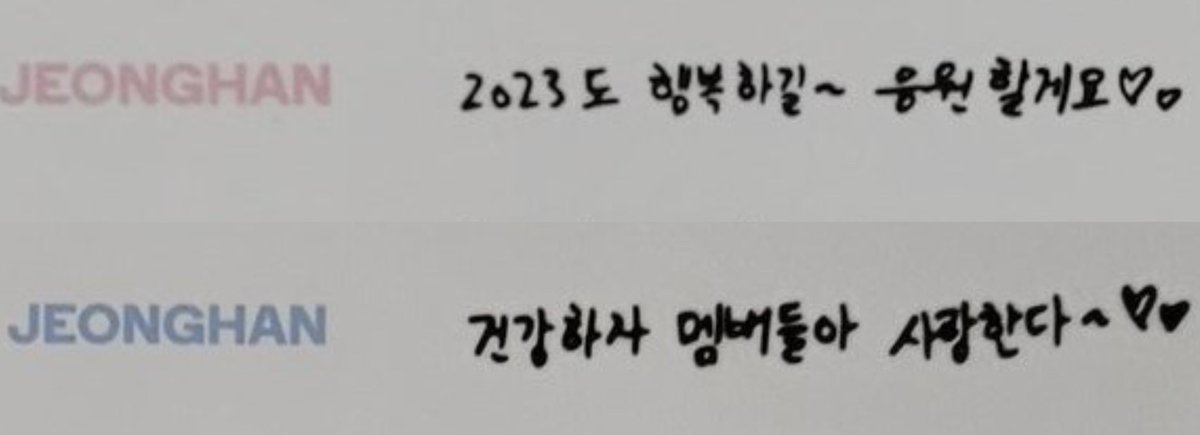 JEONGHAN 2023도 행복하길~ 응원할게요♡♡
JEONGHAN 건강하자 멤버들아 사랑한다~♡♥